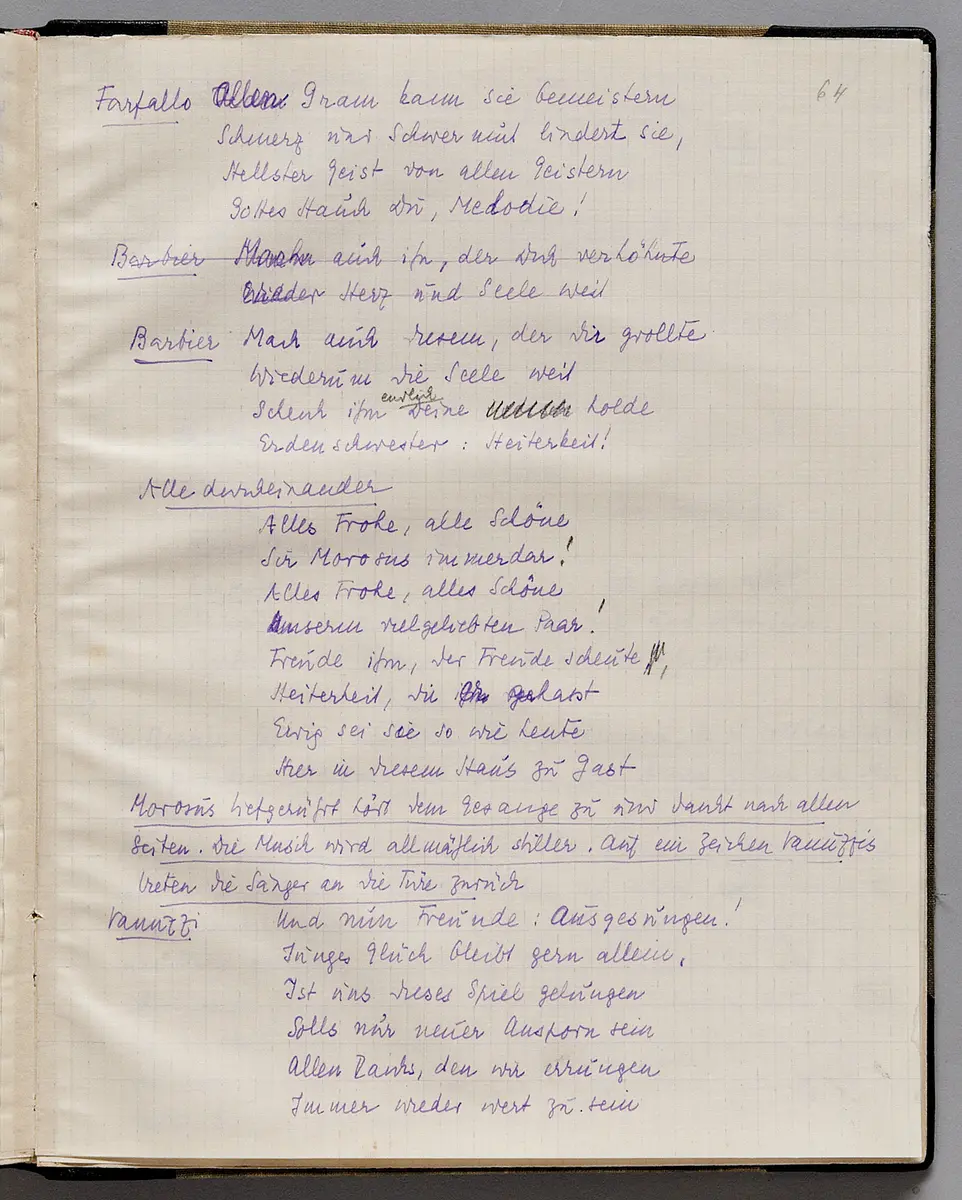 64
Farfallo Allen Gram kann sie bemeistern
Schmerz und Schwermut lindert sie,
Hellster Geist von allen Geistern
Gottes Hauch du, Melodie!
Barbier Mach auch ihn, der dich verhöhnte
Wieder Herz und Seele weit
Barbier Mach auch diesem, der dir grollte
Wiederum die Seele weit
endlich
Schenk ihm deine holde
Erdenschwester: Heiterkeit!
Alle durcheinander
Alles Frohe, alle Schöne
Sir Morosus immerdar!
Alles Frohe, alles Schöne
Unserm vielgeliebten Paar!
Freude ihm, der Freude scheute,
Heiterkeit, die ihr gehasst
Ewig sei sie so wie heute
Hier in diesem Haus zu Gast
Morosus tiefgerührt hört dem Gesange zu und dankt nach allen
Seiten. Die Musik wird allmählich stiller. Auf ein Zeichen Vanuzzis
treten die Sänger an die Türe zurück
Vanuzzi Und nun Freunde: Ausgesungen!
Junges Glück bleibt gern allein,
Ist uns dieses Spiel gelungen
Solls nur neuer Ansporn sein
Allen Danks, den wir errungen
Immer wieder wert zu sein